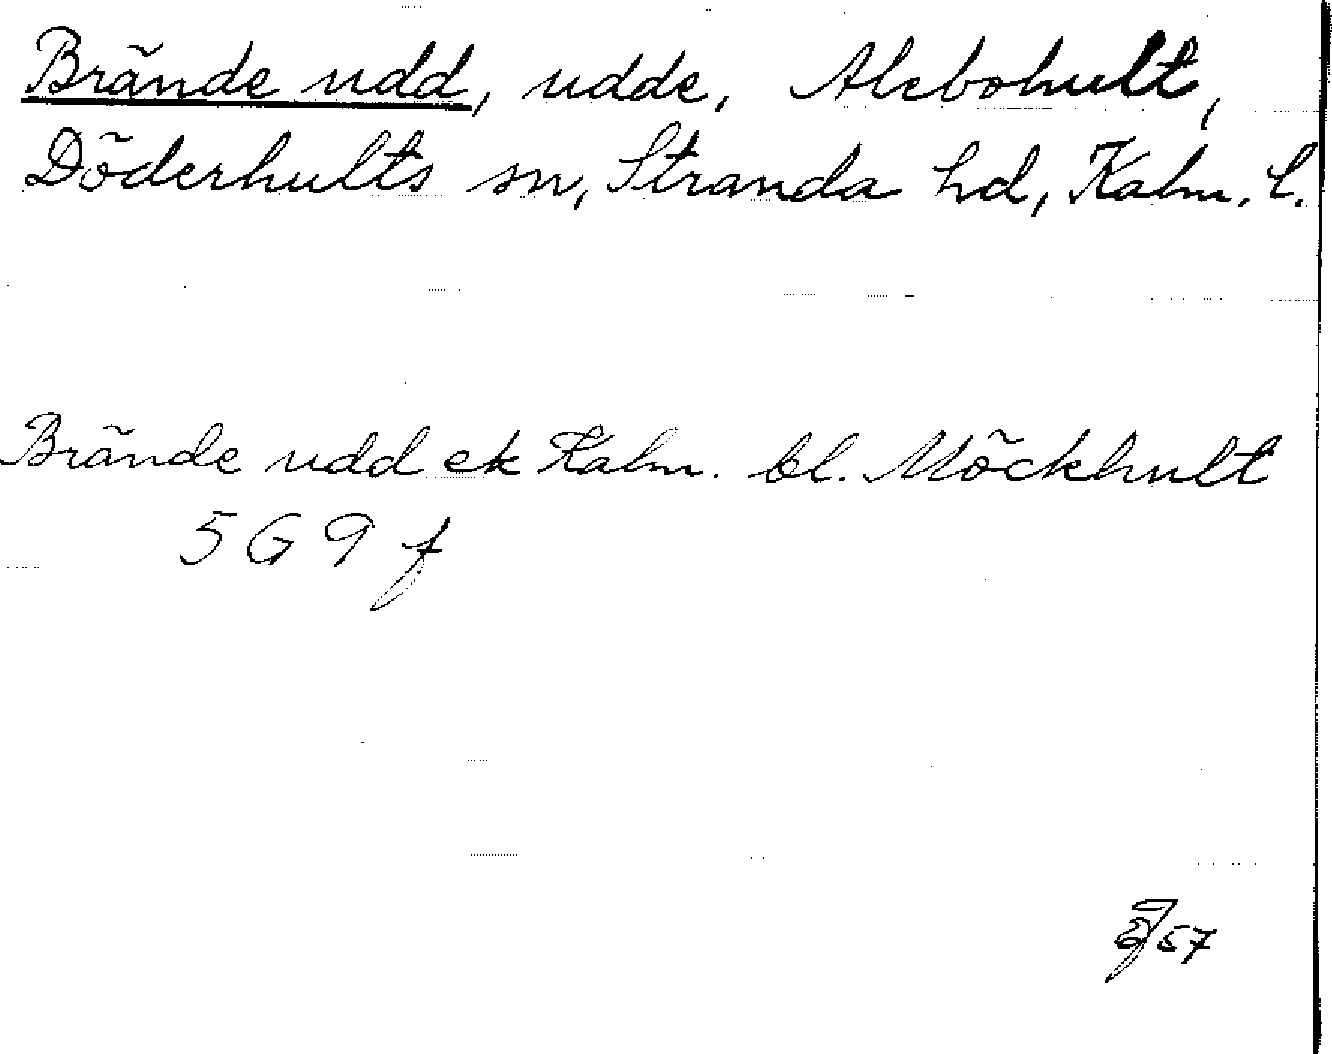 Brände udd, udde, Alebohult,
Döderhults sn, Stranda hd, Kalm. l.
Brände udd ek Kalm. bl. Möckhult
5 G 9 f
57